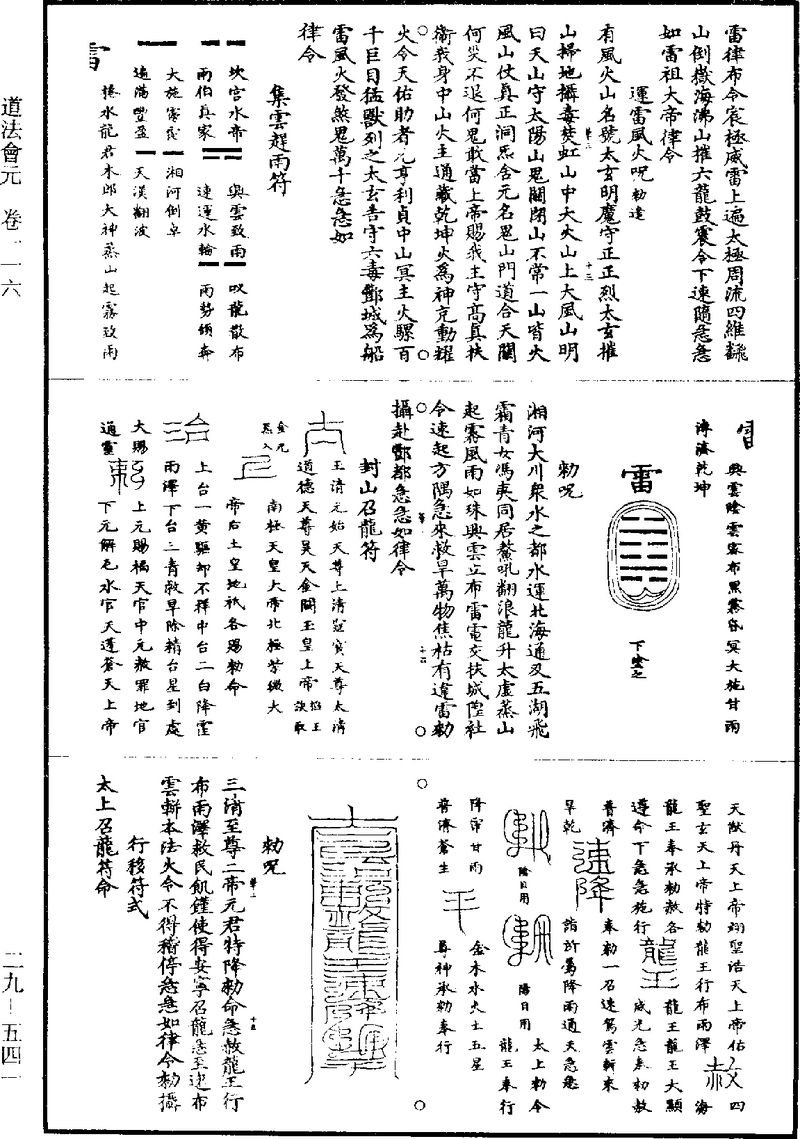 道法會元 卷一一六
二九—五四一
雷律布令宸極威雷上遍太極周流四維翻
山倒嶽海沸山摧六龍鼓震令下速隨急急
如雷祖大帝律令
運雷風火呪 勅違
有風火山名號太玄明魔守正正烈太玄摧
山掃地攝毒焚虹山中大火山上大風山明
曰天山守太陽山鬼關閉山不常一山皆火
風山仗真正洞炁含元名鬼山門道合天關
何災不退何鬼敢當上帝賜我主守高真扶
衞我身中山火主通藏乾坤火為神充動耀
火令天佑助者元亨利貞中山冥主火騾百
千巨目猛獸列之太玄吾守六毒酆城為船
雷風火發煞鬼萬千急急如
律令
集雲趕雨符
坎宮水帝 興雲致雨 吸龍散布
雨伯真家 速運水輪 雨勢傾奔
大施霧彩 湘河倒卓
遍滿豐盈 天漢翻波
捲水龍君木郎大神蒸山起霧致雨
雷
雷
興雲陰雲密布黑霧昏冥大施甘雨
溥濟乾坤
雷
下坐之
勅呪
湘河大川衆水之都水運北海通及五湖飛
霜青女馮夷同居鰲吼翻浪龍升太虛蒸山
起霧風雨如珠興雲立布雷電交扶城隍社
令速起方隅急來救旱萬物焦枯有違雷勅
攝赴酆都急急如律令
封山召龍符
玉清元始天尊上清靈寶天尊太清
道德天尊昊天金闕玉皇上帝 掐玉訣取
金光炁入
南極天皇大帝北極紫微大
帝后土皇地祇各賜勅命
上台一黃驅却不祥中台二白降霪
雨澤下台三青救旱除精台星到處
大賜
上元賜福天官中元赦罪地官
通靈
下元解厄水官天蓬蒼天上帝
天猷丹天上帝翊聖皓天上帝佑
聖玄天上帝特勅龍王行布雨澤
赦
四海
龍王奉承勅赦各
遵命下急急施行
龍王
龍王龍王大顯
威光急奉勅赦
普濟
速降
奉勅一召速駕雲軿來
旱乾
詣所駕降雨通天急急
陰日用
陽日用
太上勅令
龍王奉行
降霈甘雨
普濟蒼生
平
金木水火土五星
尊神承勅奉行
勅呪
三清至尊二帝元君特降勅命急救龍王行
布雨澤救民飢饉使得安寧召龍急至速布
雲軿本法火令不得稽停急急如律令勅攝
行移符式
太上召龍符命